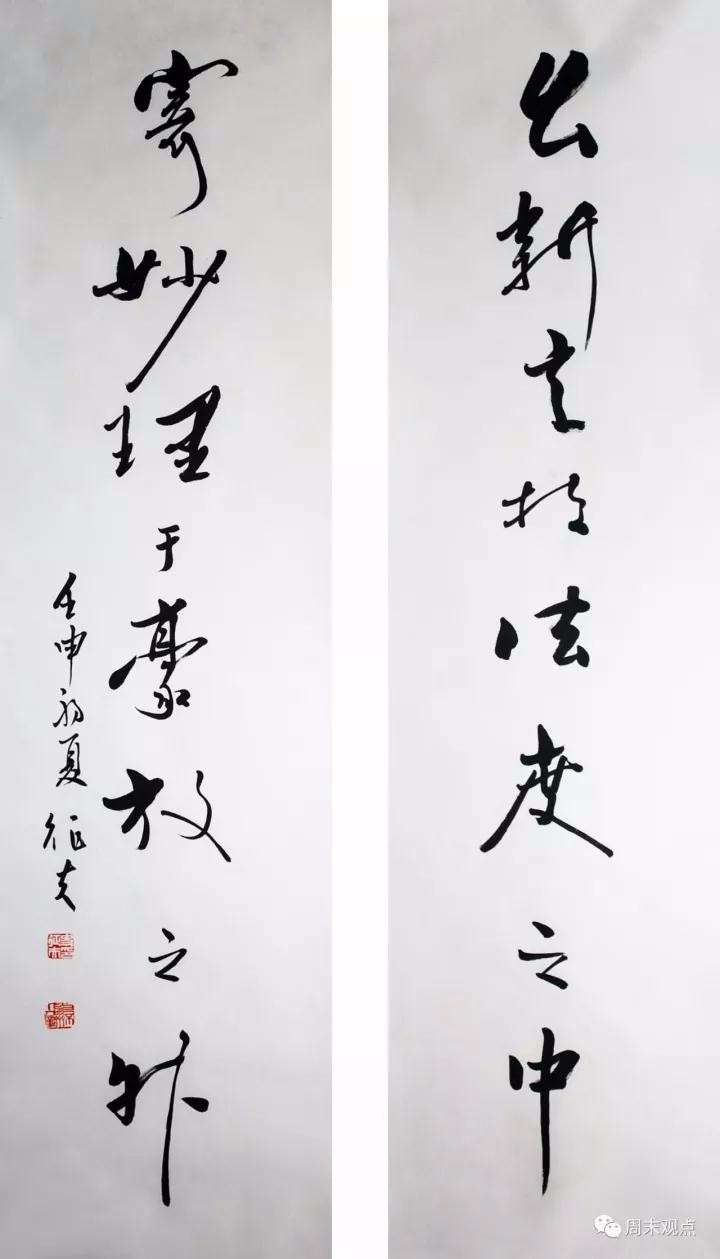 出新意於法度之中
寄妙理于豪放之外
壬申初夏 征夫
周末观点